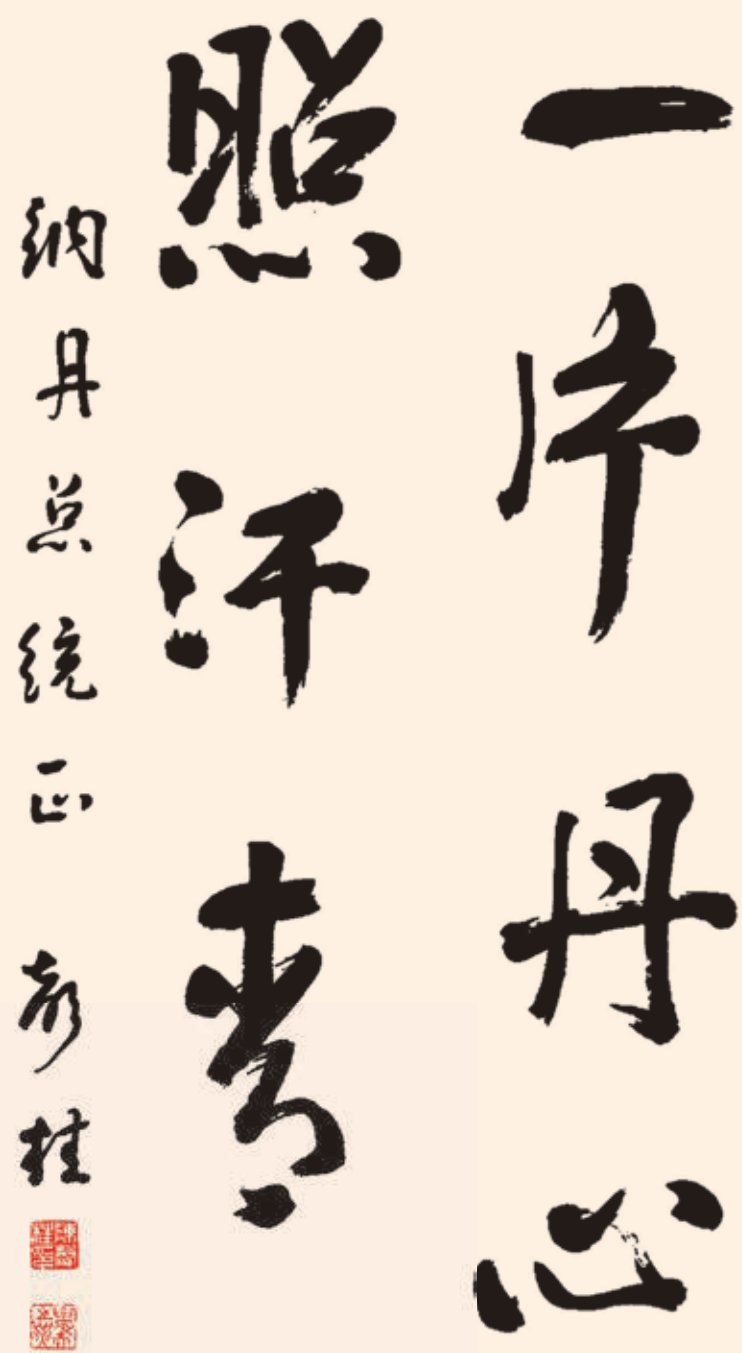 一片丹心
照汗青
纳丹总统正 彦桂